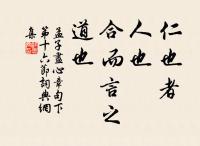 仁也者
人也
合而言之
道也
孟子盡心章句下
第十六節詞典網
集